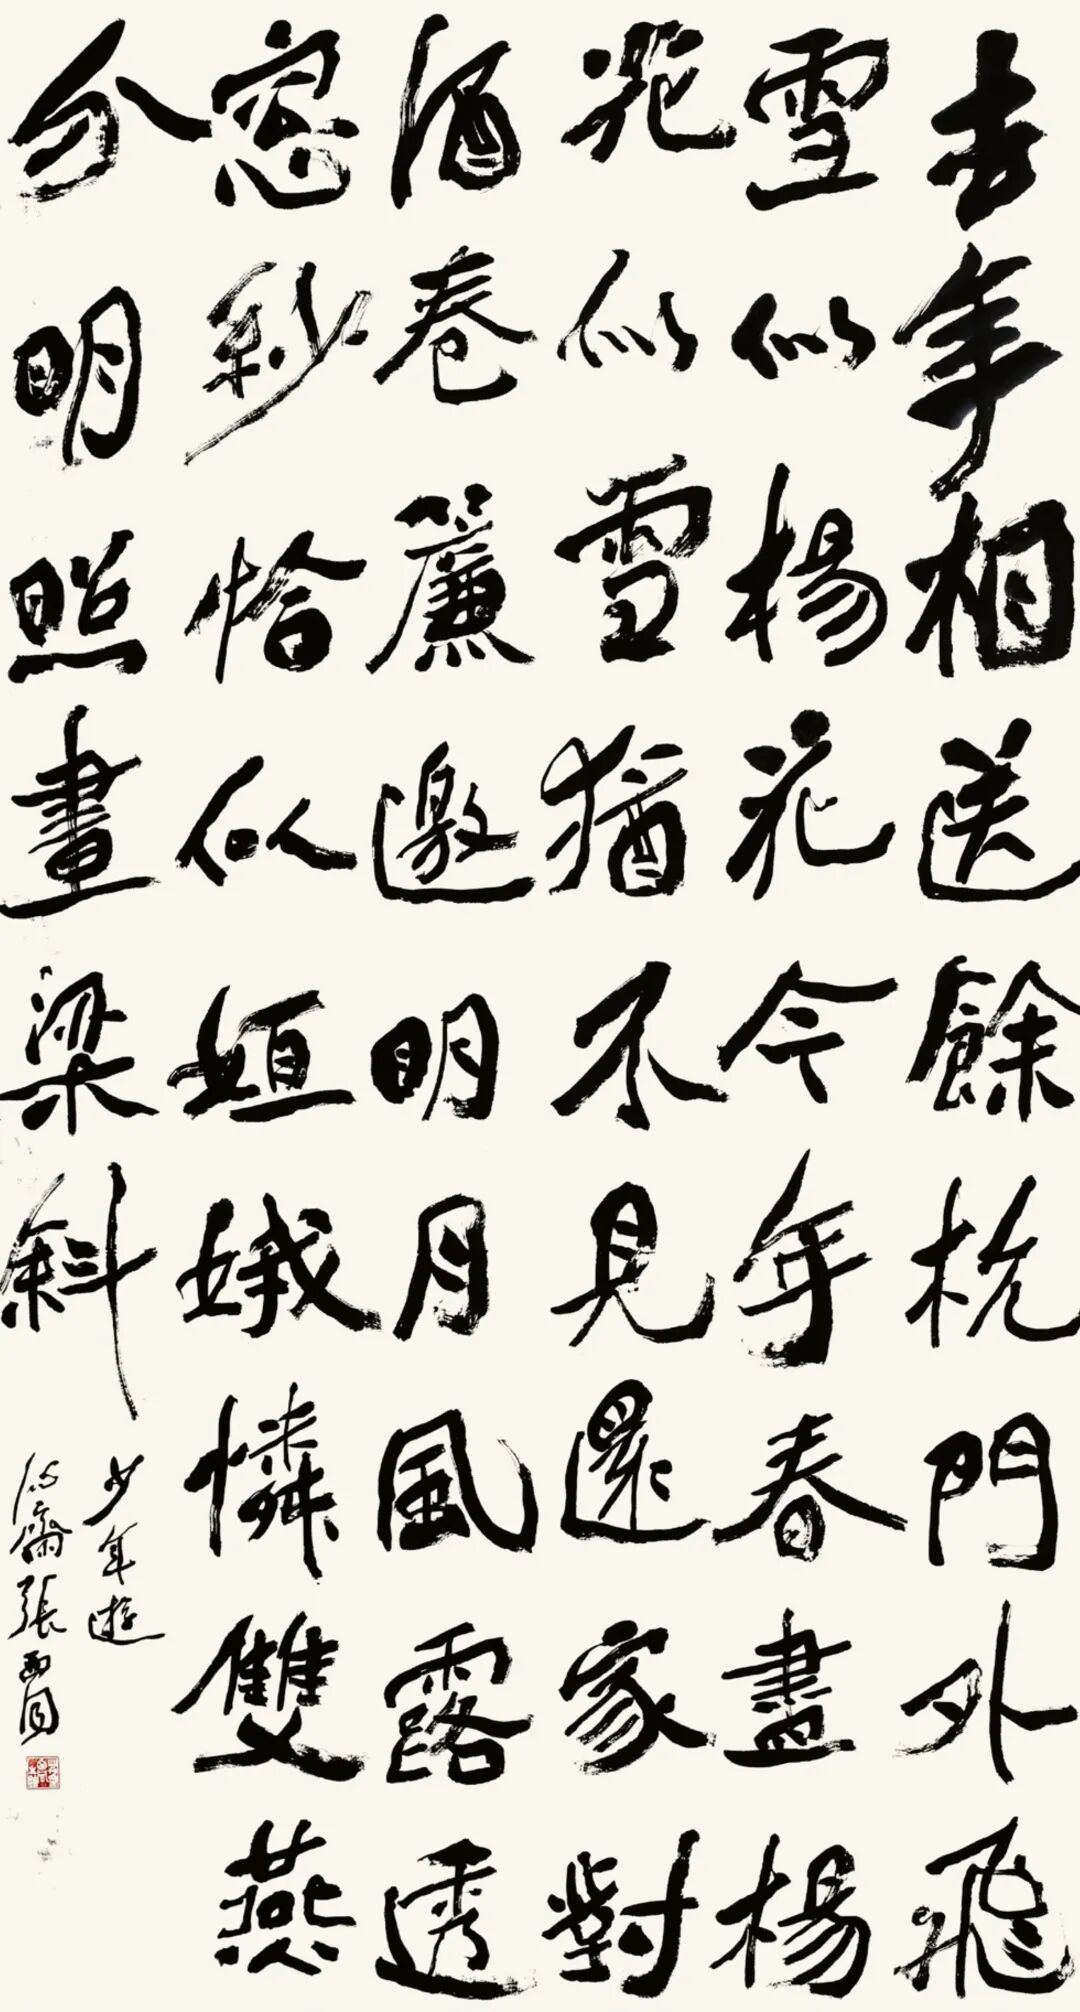 去年相送餘杭門外飛
雪似楊花今年春盡楊
花似雪猶不見還家對
酒卷簾邀明月風露透
窓紗恰似姮娥憐雙燕
分明照畫梁斜
少年遊
齋張